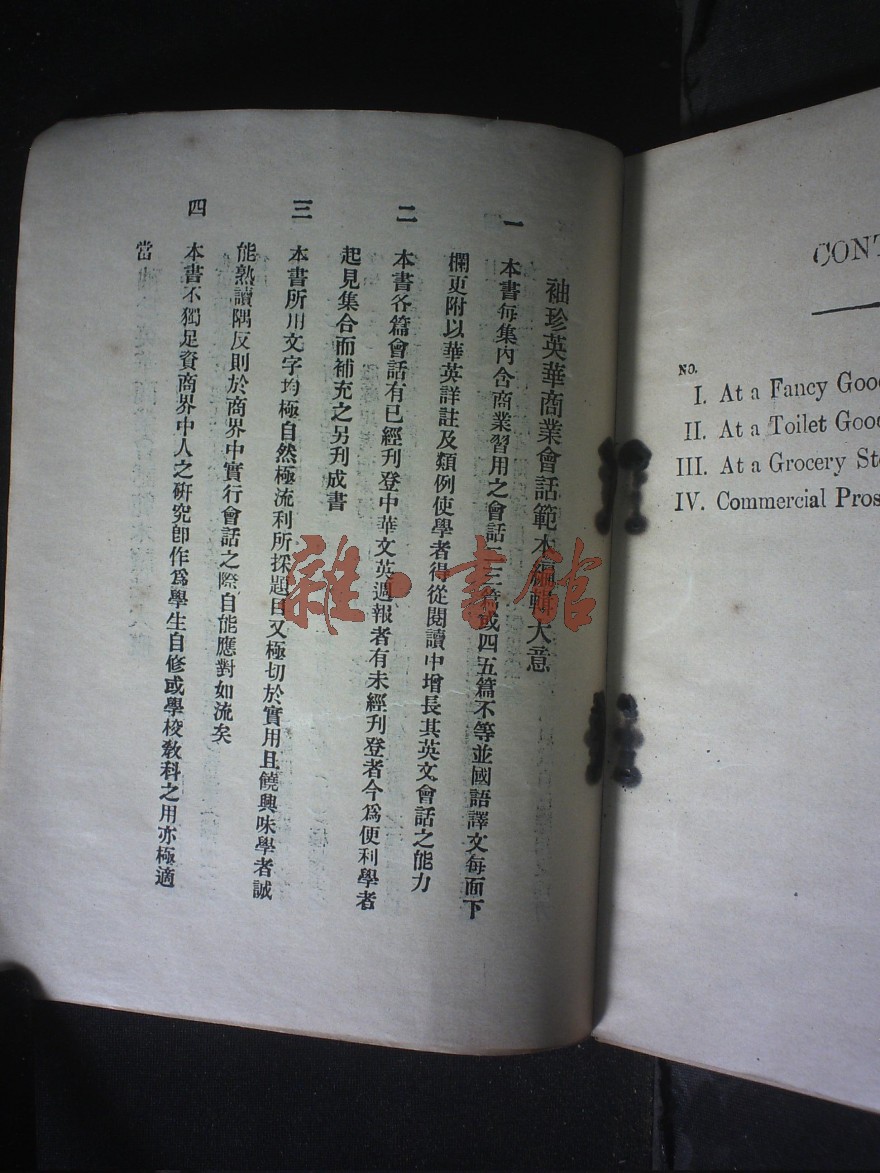 袖珍英華商業會話範本編輯大意
一 本書每集內含商業習用之會話二三篇或四五篇不等並國語譯文每面下
欄更附以華英詳註及類例使學者得從閱讀中增長其英文會話之能力
二 本書各篇會話有已經刊登中華英文週報者有未經刊登者今爲便利學者
起見集合而補充之另刋成書
三 本書所用文字均極自然極流利所採題目又極切於實用且饒興味學者誠
能熟讀隅反則於商界中實行會話之際自能應對如流矣
四 本書不獨足資商界中人之硏究卽作爲學生自修或學校敎科之用亦極適
當
CONT
NO.
I. At a Fancy Good
II. At a Toilet Good
III. At a Grocery Sto
IV. Commercial Pros
雜·書館